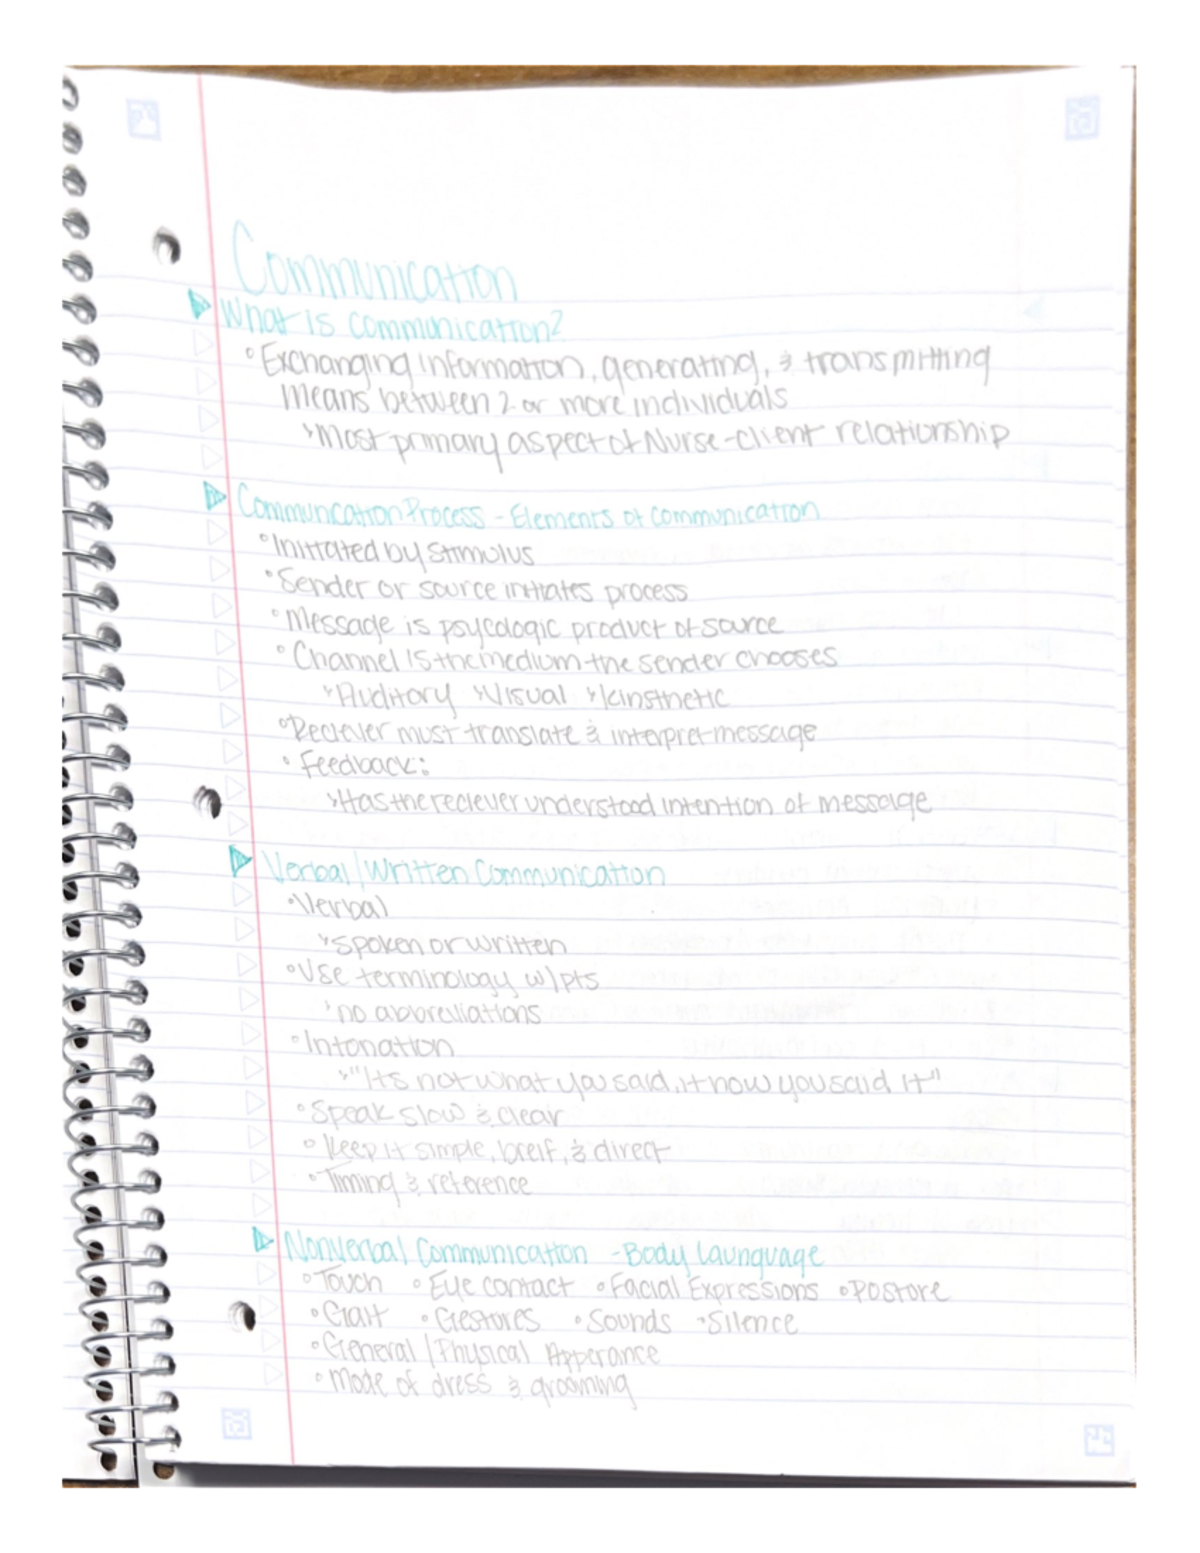 Communication
What is communication?
° Exchanging information, generating, & transmitting
means between 2 or more individuals
> Most primary aspect of Nurse-client relationship
Communication Process - Elements of communication
° Initiated by stimulus
° Sender or source initiates process
° Message is psycologic product of source
° Channel is the medium the sender chooses
> Auditory > Visual > kinsthetic
° Reciever must translate & interpret message
° Feedback:
> Has the reciever understood intention of message
Verbal/Written Communication
° Verbal
> spoken or written
° Use terminology w/pts
> no abbreviations
° Intonation
> "Its not what you said, it how you said it"
° Speak slow & clear
° Keep it simple, breif, & direct
° Timing & reference
Nonverbal Communication - Body Launguage
° Touch ° Eye contact ° Facial Expressions ° Posture
° Gait ° Gestures ° Sounds ° Silence
° General/Physical Apperance
° Mode of dress & grooming